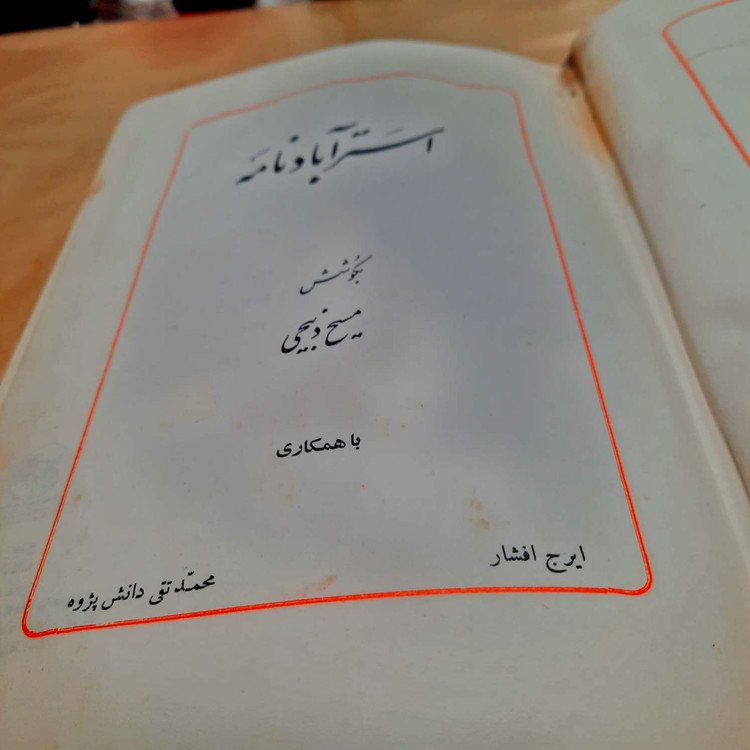 استرآبادنامه
بکوشش
مسیح ذبیحی
با همکاری
ایرج افشار
محمّدتقی دانش پژوه